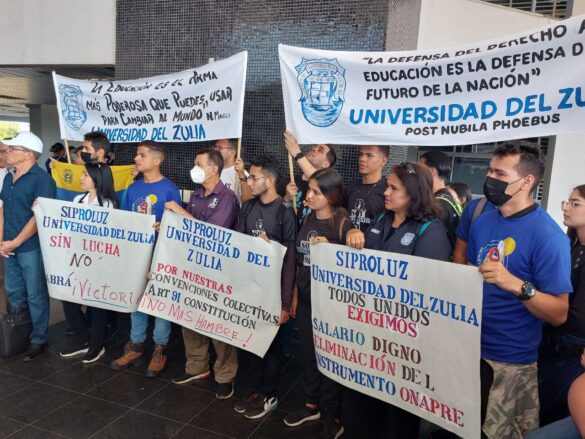 LA EDUCACIÓN ES EL ARMA
MÁS PODEROSA QUE PUEDES USAR
PARA CAMBIAR AL MUNDO
UNIVERSIDAD DEL ZULIA
"LA DEFENSA DEL DERECHO A
EDUCACIÓN ES LA DEFENSA D
FUTURO DE LA NACIÓN"
UNIVERSIDAD DEL ZULI
POST NUBILA PHOEBUS
SIPROLUZ
UNIVERSIDAD DEL ZULIA
SIN LUCHA
NO
ABRÁ ¡Victori
SIPROLUZ
UNIVERSIDAD DEL
ZULIA
POR NUESTRAS
CONVENCIONES COLECTIVAS
ART 91 CONSTITUCIÓN
¡NO MAS HAMBRE...!
SIPROLUZ
UNIVERSIDAD DEL ZULIA
TODOS UNIDOS
EXIGIMOS
SALARIO DIGNO
ELIMINACIÓN DEL
INSTRUMENTO ONAPRE